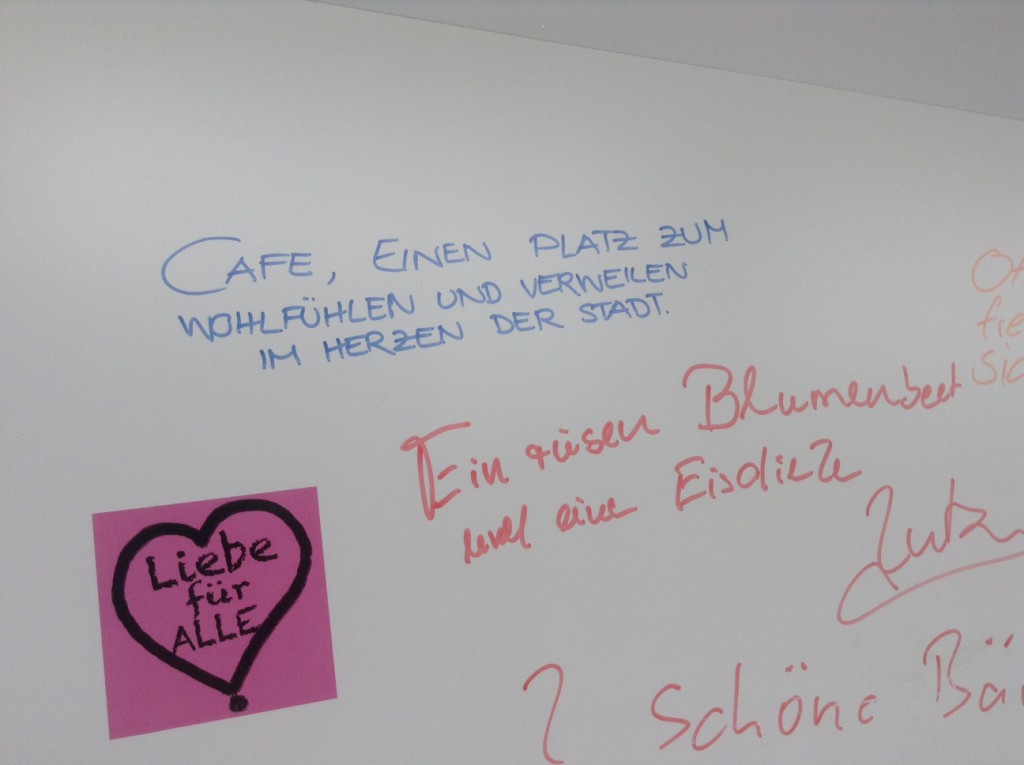 CAFE, EINEN PLATZ ZUM
WOHLFÜHLEN UND VERWEILEN
IM HERZEN DER STADT.
Ein riesen Blumenbeet
und eine Eisdiele
Liebe
für
ALLE
Schöne Bä